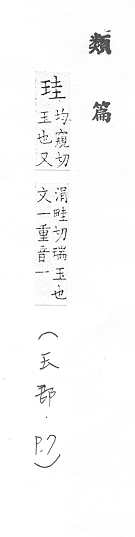 類篇
珪均窺切玉也又涓畦切瑞玉也文一重音一
(玉部.P.7)